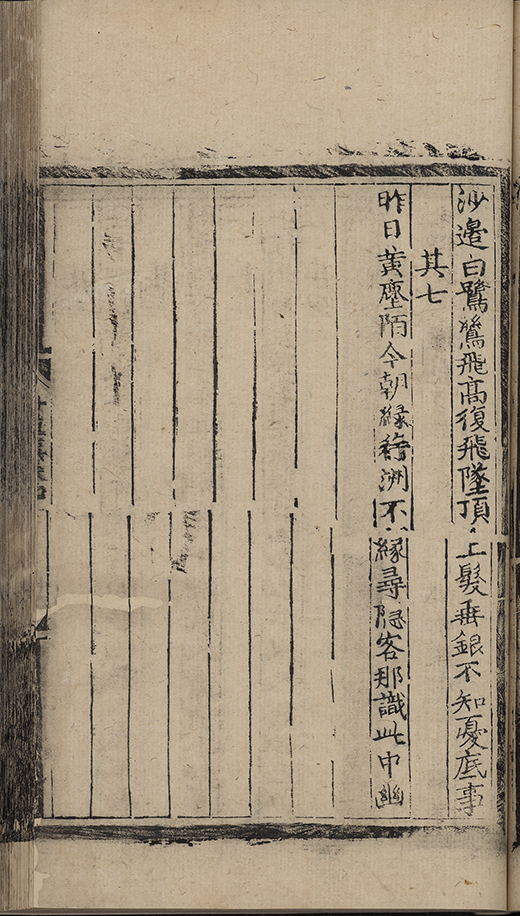 沙邉白鷺鷥飛高復飛墜頂上髮垂銀不知憂底事
其七
昨日黄塵陌今朝緑荇洲不縁尋隠客那識此中幽